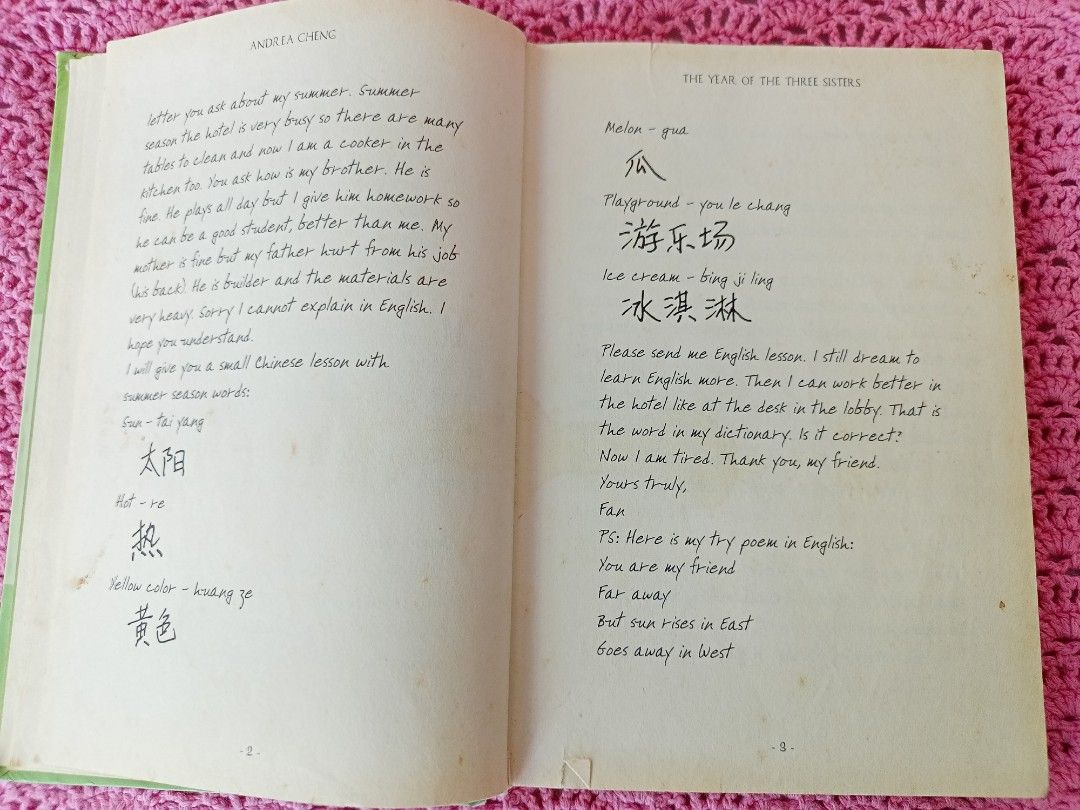 ANDREA CHENG
letter you ask about my summer. Summer
season the hotel is very busy so there are many
tables to clean and now I am a cooker in the
kitchen too. You ask how is my brother. He is
fine. He plays all day but I give him homework so
he can be a good student, better than me. My
mother is fine but my father hurt from his job
(his back). He is builder and the materials are
very heavy. Sorry I cannot explain in English. I
hope you understand.
I will give you a small Chinese lesson with
summer season words:
Sun – tai yang
太阳
Hot – re
热
Yellow color – huang ze
黄色
- 2 -
THE YEAR OF THE THREE SISTERS
Melon – gua
瓜
Playground – you le chang
游乐场
Ice cream – bing ji ling
冰淇淋
Please send me English lesson. I still dream to
learn English more. Then I can work better in
the hotel like at the desk in the lobby. That is
the word in my dictionary. Is it correct?
Now I am tired. Thank you, my friend.
Yours truly,
Fan
PS: Here is my try poem in English:
You are my friend
Far away
But sun rises in East
Goes away in West
- 3 -